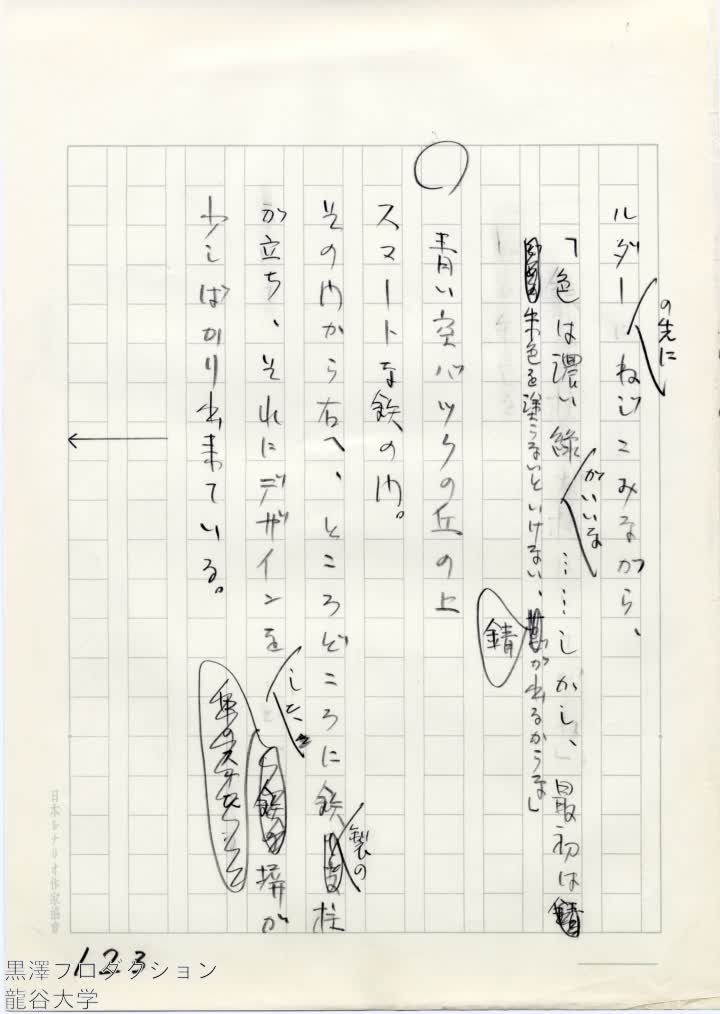 の先に
ルダーねじこみながら、
がいいな
「色は濃い緑……しかし、最初は
朱色を塗らないといけない、が出るからな」
錆
青い空バックの丘の上
スマートな鉄の門。
製の
その門から右へ、ところどころに鉄柱
した
が立ち、それにデザインを塀が
少しばかり出来ている。
日本シナリオ作家協會
123
黒澤プロダクション
龍谷大学